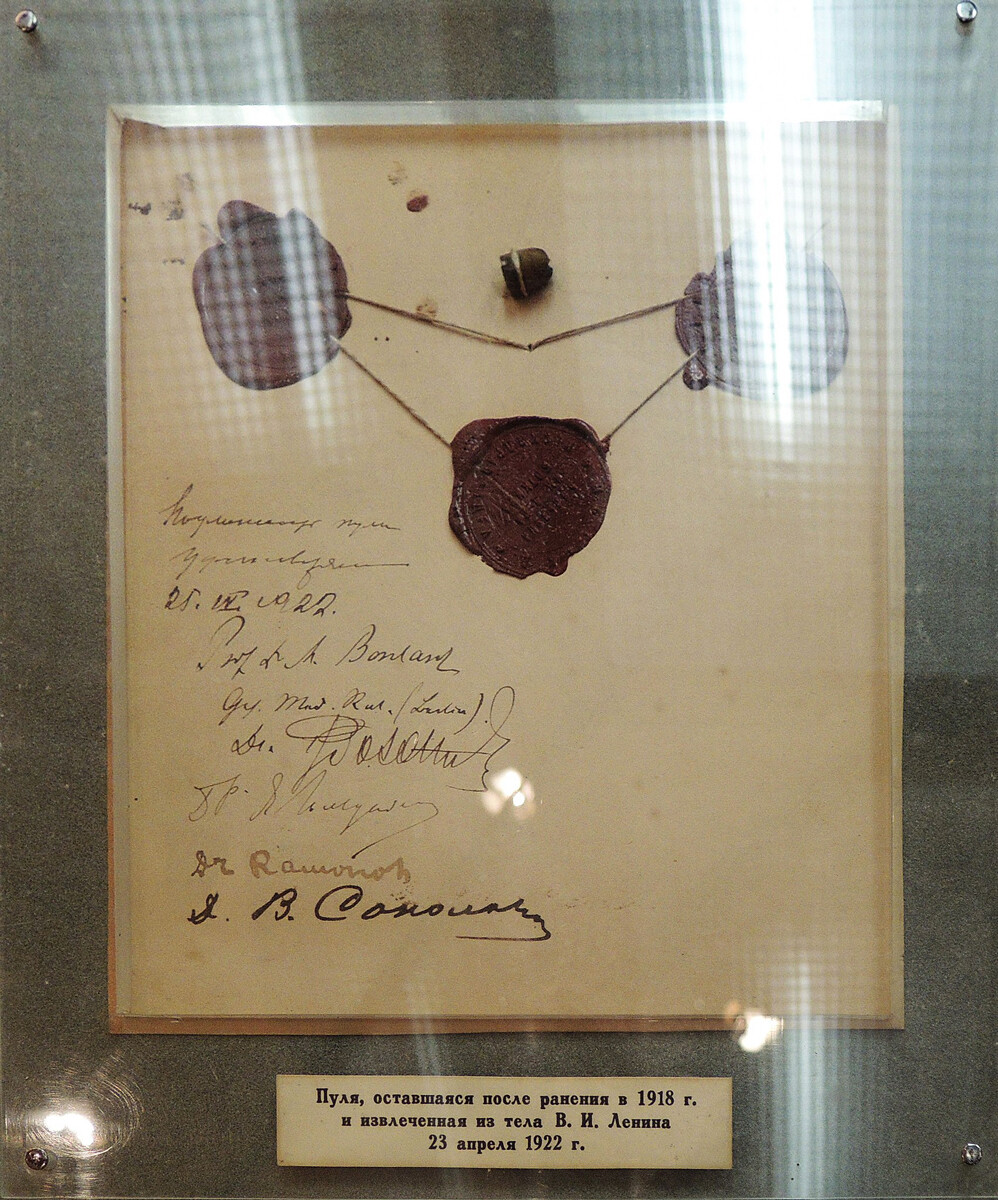 Подлинность пули
удостоверяем
25. IV. 1922.
Prof Dr M. Borchardt
Geh. Med. Rat. (Berlin)
Dr. Розанов
Др.
Dr Ramonov
Д. В. Соколов
Пуля, оставшаяся после ранения в 1918 г.
и извлеченная из тела В. И. Ленина
23 апреля 1922 г.